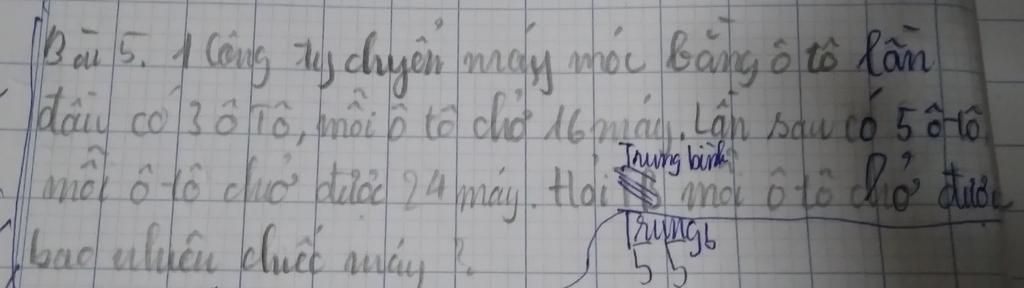 Bài 5. 1 Công ty chuyển máy móc bằng ô tô lần
đầu có 3 ô tô, mỗi ô tô chở 16 máy. Lần sau có 5 ô tô
mỗi ô tô chở được 24 máy. Hỏi Trung bình mỗi ô tô chở được
Trung b
bao nhiêu chiếc máy ?
5 5